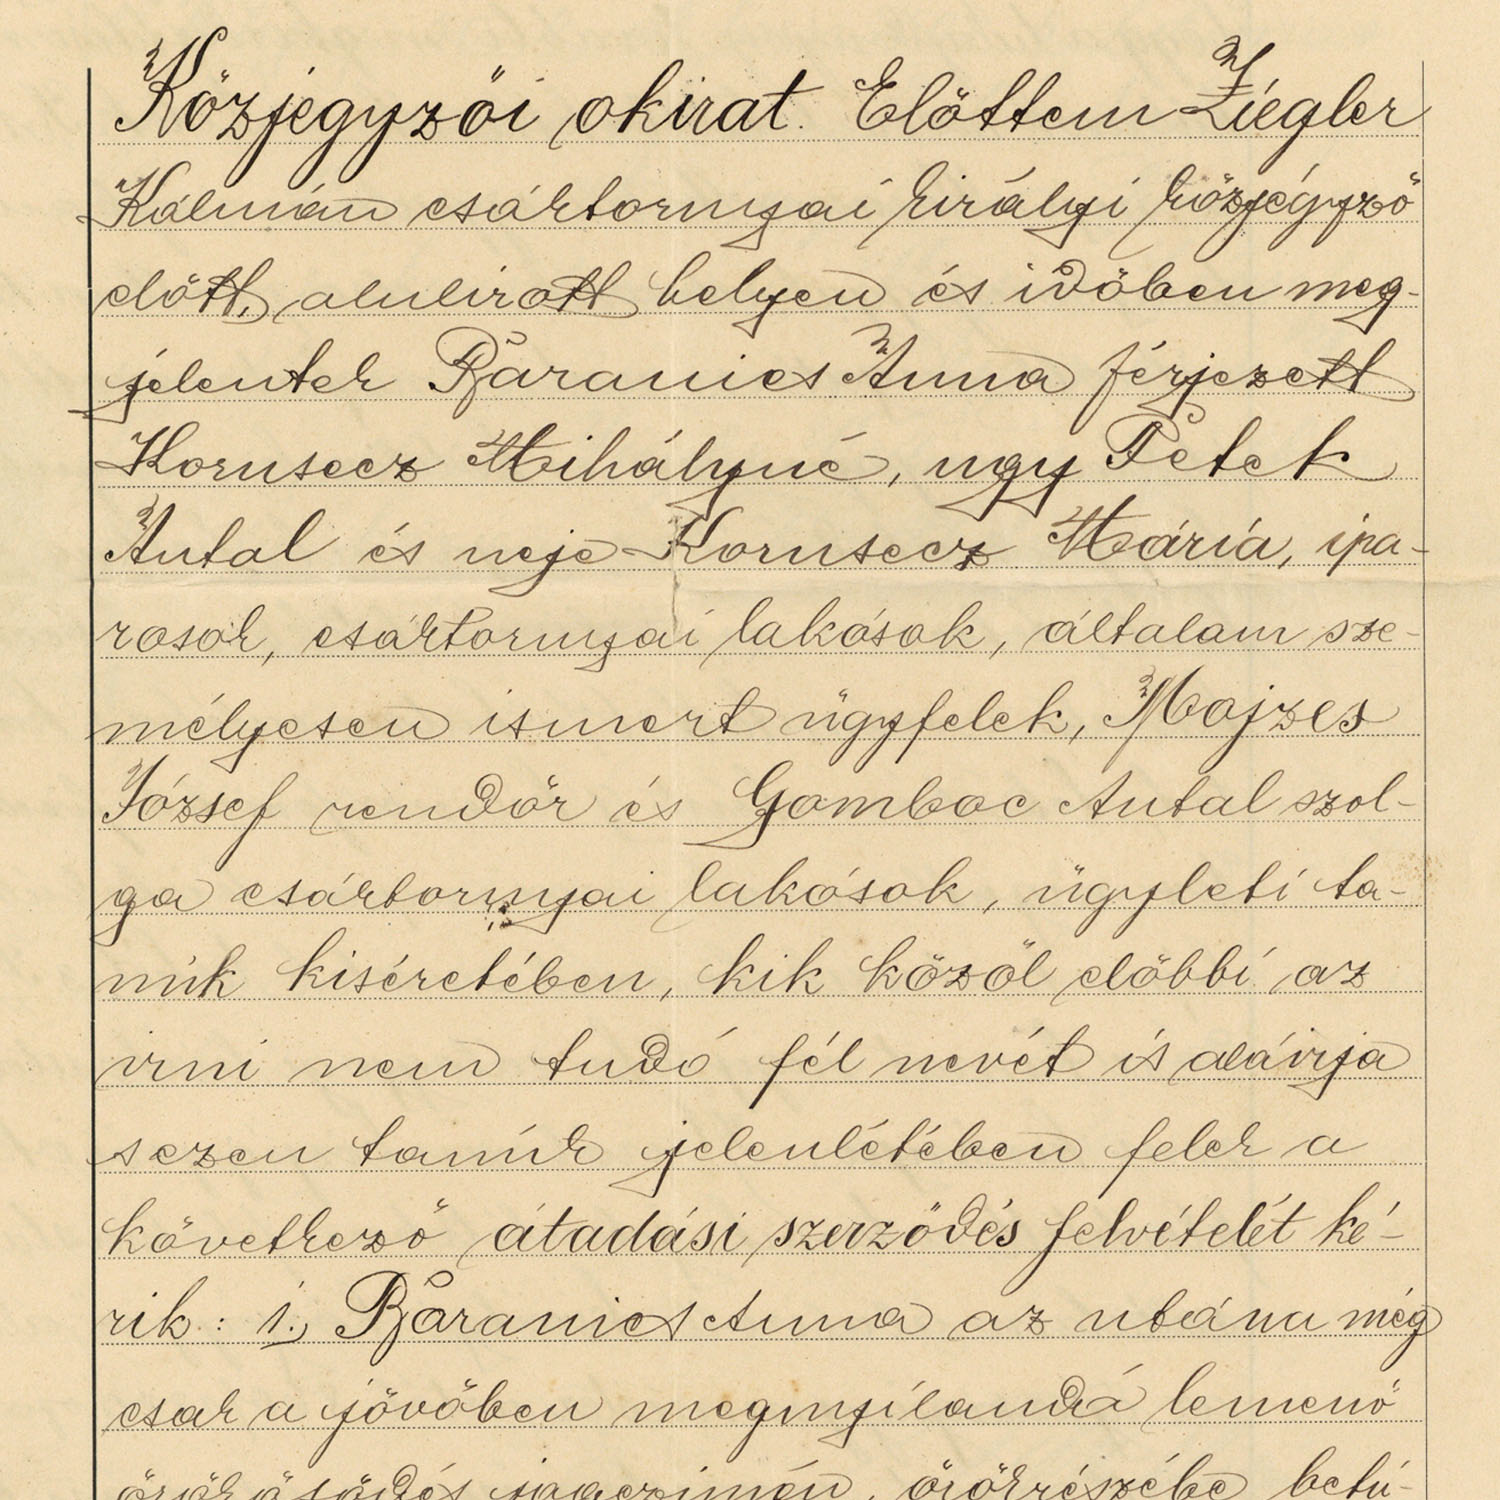 Közjegyzői okirat. Előttem Ziegler
Kálmán csáktornyai királyi közjegyző
előtt, alulirott helyen és időben meg-
jelentek Baranics Anna férjezett
Kornsecz Mihályné, ugy Petek
Antal és neje Kornsecz Mária, ipa-
rosok, csáktornyai lakósok, általam sze-
mélyesen ismert ügyfelek, Mojzes
József rendőr és Gomboc Antal szol-
ga csáktornyai lakósok, ügyleti ta-
núk kiséretében, kik közöl előbbi az
irni nem tudó fél nevét is aláirja
s ezen tanúk jelenlétében felek a
következő átadási szerződés felvételét ké-
rik: 1., Baranics Anna az utána még
csak a jövőben megnyílandó lemenő
örökösödés jogczimén, örökrészébe betú-